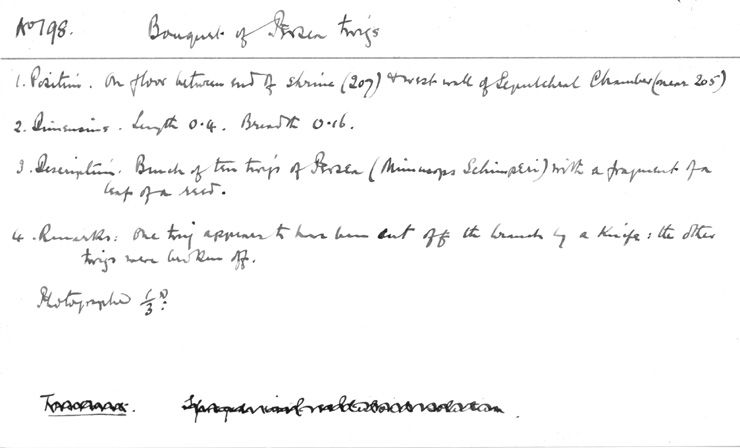 No 198. Bouquet of Persea twigs
1. Position. On floor between end of shrine (207) & west wall of Sepulchral Chamber (near 205)
2. Dimensions. Length 0.4. Breadth 0.16.
3. Description. Bunch of ten twigs of Persea (Mimusops Schimperi) with a fragment of a
leaf of a reed.
4. Remarks: One twig appears to have been cut off the branch by a knife: the other
twigs were broken off.
Photographed 1/3